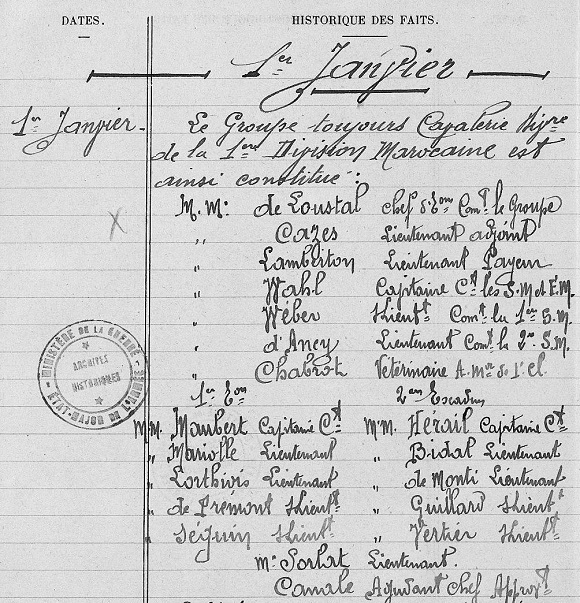 DATES. HISTORIQUE DES FAITS.
1er Janvier
1er Janvier. Le Groupe toujours Cavalerie Divre
de la 1ère Division Marocaine est
ainsi constitué :
M.M. de Loustal Chef d'Eon Comt le Groupe
" Cazes Lieutenant adjoint
" Lambiton Lieutenant Payeur
" Wahl Capitaine Ct les S.M et E.M.
" Wéber Comt la 1ère S.M.
" d'Aney Lieutenant Comt la 2e S.M.
" Chabrot Vétérinaire A.M. de 1e cl.
1er Eon 2em Escadron
M.M. Maubert Capitaine Ct M.M. Hérail Capitaine Ct
" Mariolle Lieutenant " Bidal Lieutenant
" Lorthiois Lieutenant " de Monti Lieutenant
" de Frémont S/Lieutt " Guillard S/Lieutt
" Séguin S/Lieutt " Vertier S/Lieutt
M. Sorbat Lieutenant.
Canale Adjudant Chef Approvt
MINISTÈRE DE LA GUERRE
ÉTAT-MAJOR DE L'ARMÉE
ARCHIVES
HISTORIQUES